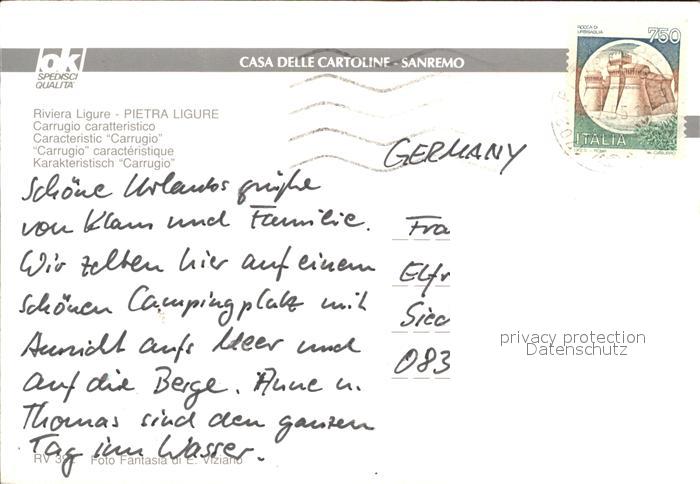 ROCCA DI
URBISAGLIA
750
ok
SPEDISCI
QUALITÀ
CASA DELLE CARTOLINE - SANREMO
Riviera Ligure - PIETRA LIGURE
Carrugio caratteristico
Characteristic "Carrugio"
"Carrugio" caractéristique
Karakteristisch "Carrugio"
ITALIA
GERMANY
Schöne Urlaubsgrüße
von Klaus und Familie.
Wir zelten hier auf einem
schönen Campingplatz mit
Aussicht aufs Meer und
auf die Berge. Anne u.
Thomas sind den ganzen
Tag im Wasser.
Fra
Elfr
Sied
083
privacy protection
Datenschutz
RV 39 Foto Fantasia di E. Viziano